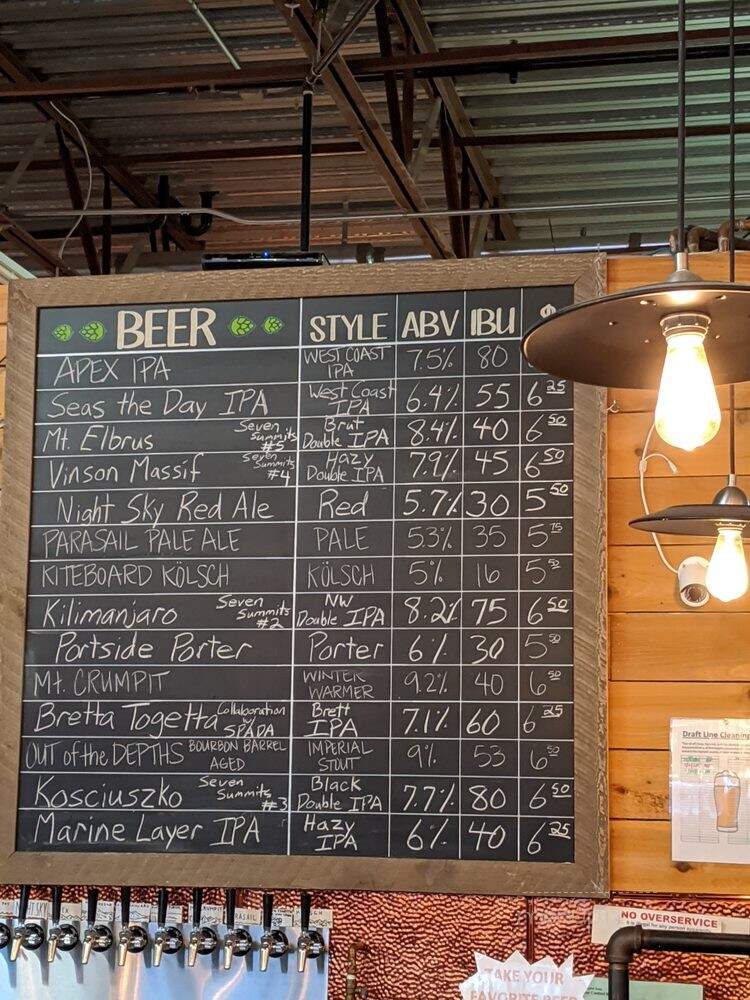 BEER STYLE ABV IBU $
APEX IPA WEST COAST IPA 7.5% 80
Seas the Day IPA West Coast IPA 6.4% 55 6 25
Mt. Elbrus Seven Summits #5 Brut Double IPA 8.4% 40 6 50
Vinson Massif Seven Summits #4 Hazy Double IPA 7.9% 45 6 50
Night Sky Red Ale Red 5.7% 30 5 50
PARASAIL PALE ALE PALE 5.3% 35 5 75
KITEBOARD KÖLSCH KÖLSCH 5% 16 5 50
Kilimanjaro Seven Summits #2 NW Double IPA 8.2% 75 6 50
Portside Porter Porter 6% 30 5 50
Mt. CRUMPIT WINTER WARMER 9.2% 40 6 50
Bretta Togetta Collaboration SPADA Brett IPA 7.1% 60 6 25
OUT of the DEPTHS BOURBON BARREL AGED IMPERIAL STOUT 9% 53 6 50
Kosciuszko Seven Summits #3 Black Double IPA 7.7% 80 6 50
Marine Layer IPA Hazy IPA 6% 40 6 25
Draft Line Cleaning
NO OVERSERVICE
TAKE YOUR
FAVORITE BEER